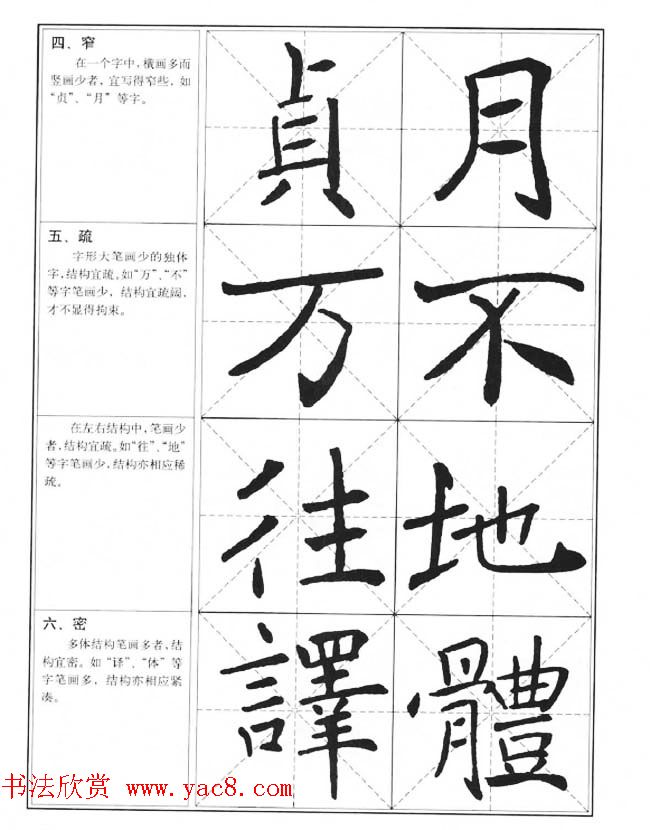 四、窄
在一个字中，横画多而
竖画少者，宜写得窄些，如
“贞”、“月”等字。
貞 月
五、疏
字形大笔画少的独体
字，结构宜疏。如“万”、“不”
等字笔画少，结构宜疏阔，
才不显得拘束。
万 不
在左右结构中，笔画少
者，结构宜疏。如“往”、“地”
等字笔画少，结构亦相应稀
疏。
往 地
六、密
多体结构笔画多者，结
构宜密。如“译”、“体”等
字笔画多，结构亦相应紧
凑。
譯 體
书法欣赏 www.yac8.com